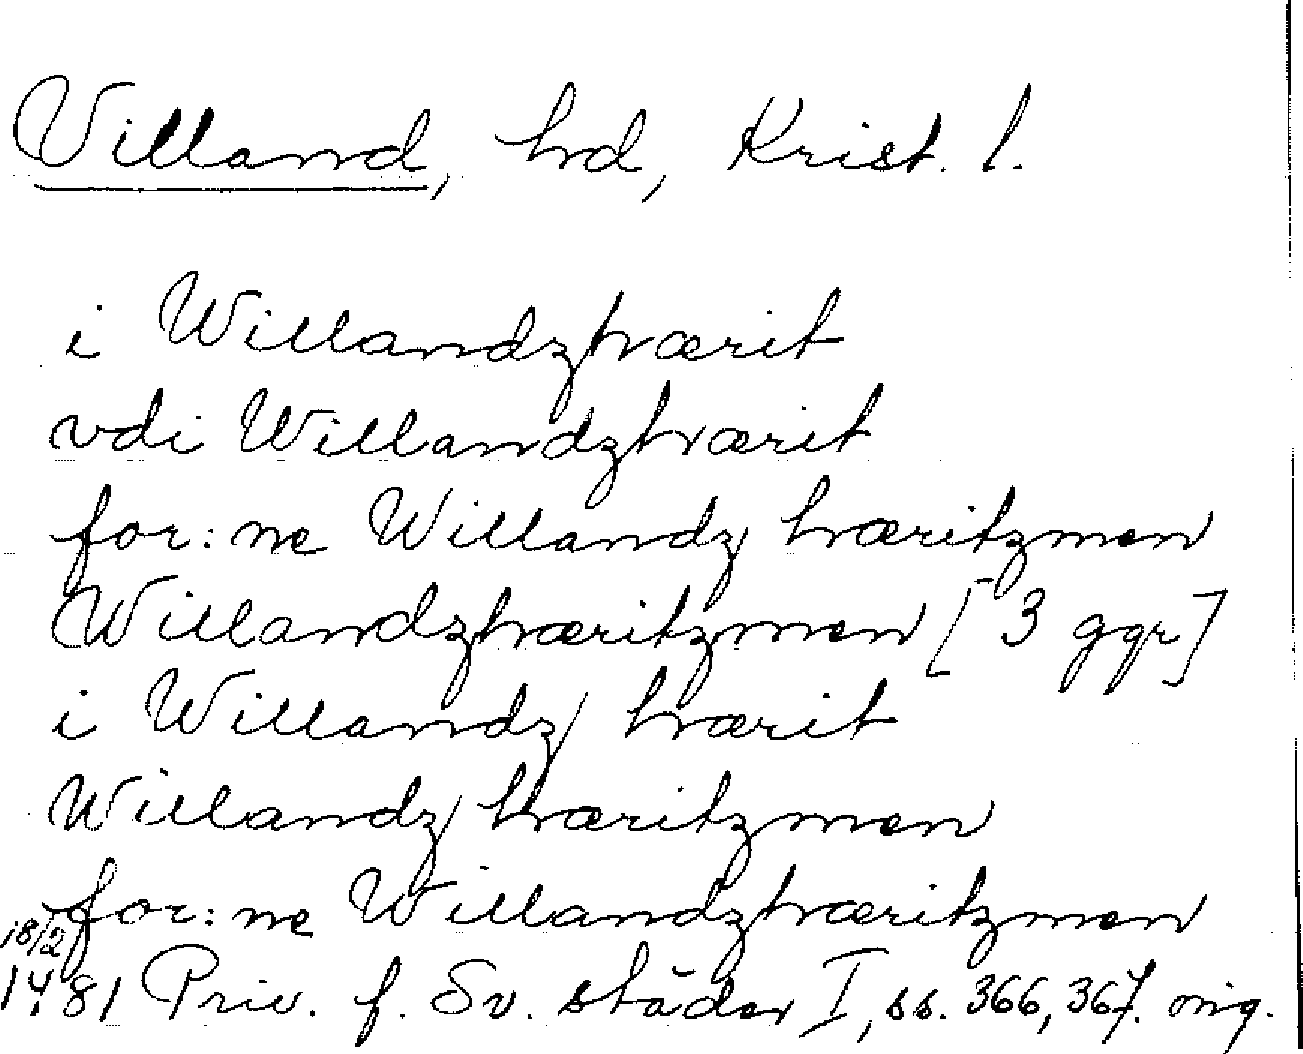 Villand, hd, Krist. l.
i Willandzhærit
vdi Willandzhærit
for: ne Willandz hæritzmen
Willandzhæritzmen [3 ggr]
i Willandz/ hærit
Willandz/ hæritzmen
for: ne Willandzhæritzmen
18/2
1481 Priv. f. Sv. städer I, ss. 366, 367. orig.